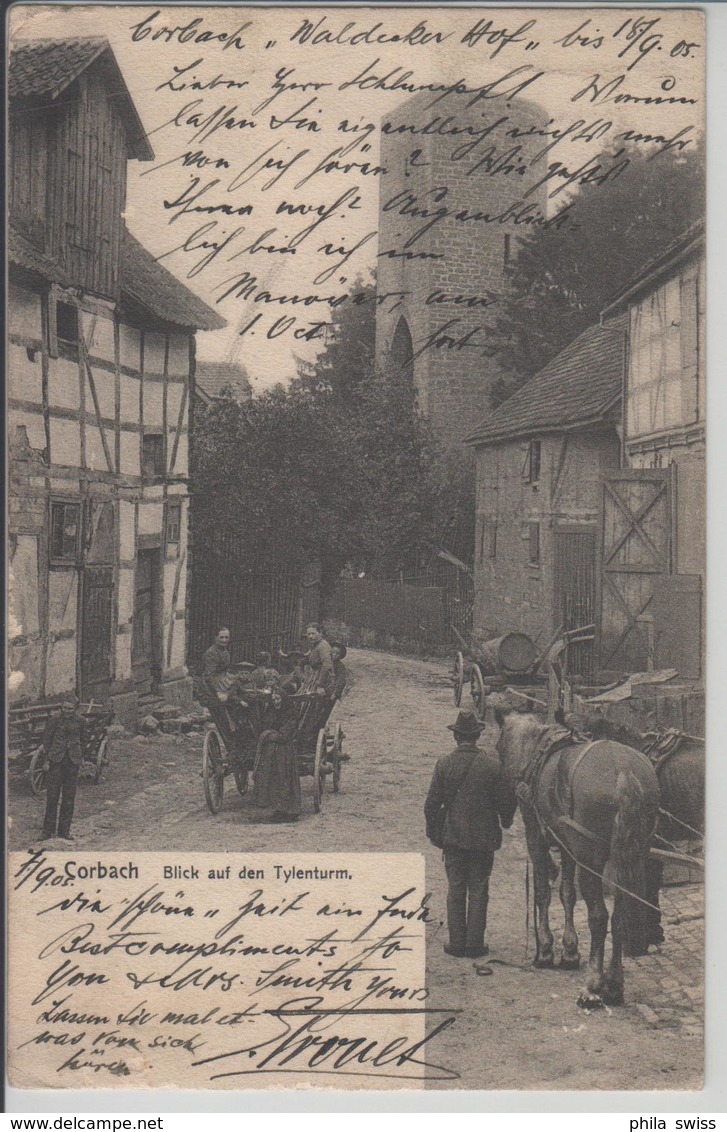 Corbach „Waldecker Hof„ bis 18/9.05.
Lieber Herr Schlumpf! Warum
lassen Sie eigentlich nichts mehr
von sich hören? Wie gehts
Ihnen noch? Augenblick-
lich bin ich im
Manöver, am
1. Oct fort
7/9.05. Corbach Blick auf den Tylenturm.
die „schöne„ Zeit ein Ende.
Best compliments to
You & Mrs. Smith Yours
Lassen Sie mal et-
was von sich
hören.
phila swiss